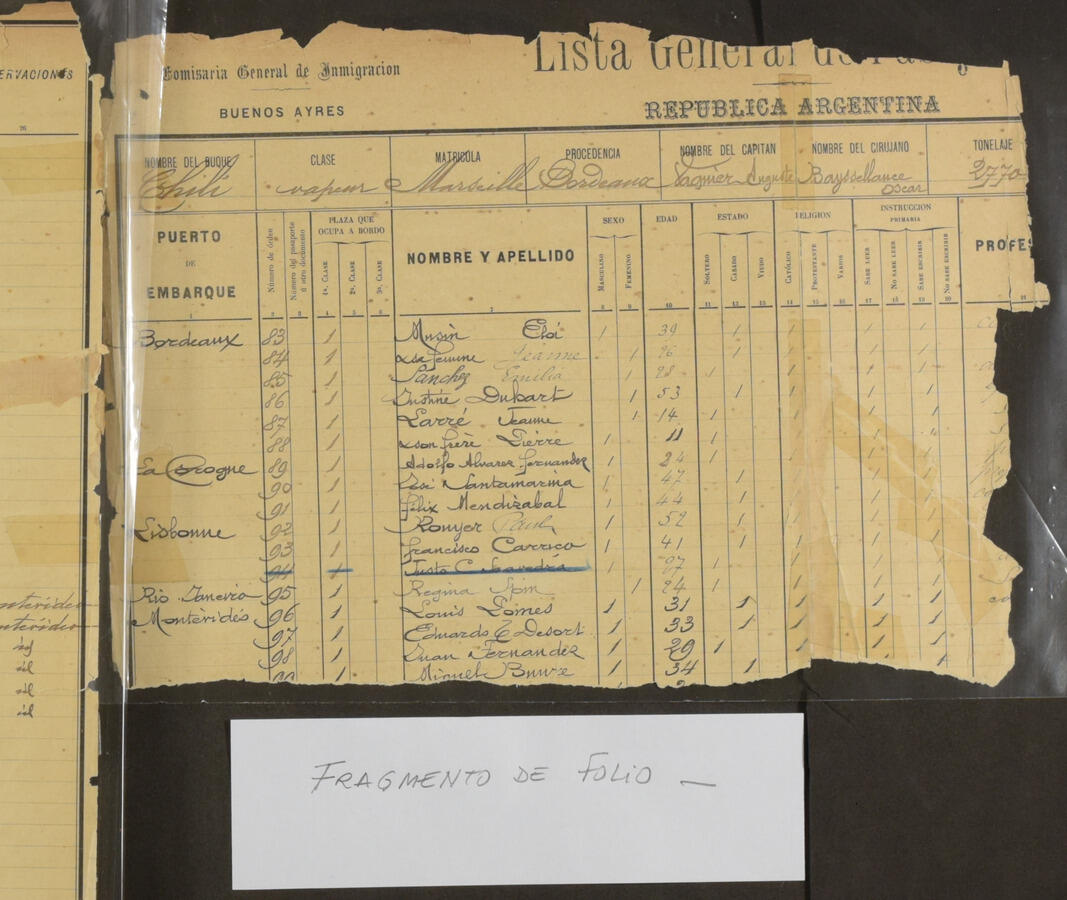 ERVACIONES
26
Comisaria General de Inmigracion
Lista General de
BUENOS AYRES
REPUBLICA ARGENTINA
NOMBRE DEL BUQUE CLASE MATRICOLA PROCEDENCIA NOMBRE DEL CAPITAN NOMBRE DEL CIRUJANO TONELAJE
Chili vapeur Marseille Bordeaux Auguste Bayssellance Oscar 2770
PUERTO DE EMBARQUE
Número de órden
Número del pasaporte ú otro documento
PLAZA QUE OCUPA A BORDO
1ª. CLASE 2ª. CLASE 3ª. CLASE
NOMBRE Y APELLIDO
SEXO
MASCULINO FEMENINO
EDAD
ESTADO
SOLTERO CASADO VIUDO
RELIGION
CATÓLICO PROTESTANTE VARIOS
INSTRUCCION PRIMARIA
SABE LEER NO SABE LEER SABE ESCRIBIR NO SABE ESCRIBIR
PROFES
1 2 3 4 5 6 7 8 9 10 11 12 13 14 15 16 17 18 19 20 21
Bordeaux 83 1 Musin Eloi 1 39 1 1 1 1
84 1 & sa femme Jeanne 1 26 1 1 1 1
85 1 Sanchez Emilia 1 28 1 1 1
86 1 Dubart 1 53 1 1 1 1
87 1 Larré Jeanne 1 14 1 1 1 1
88 1 & son frère Pierre 1 11 1 1 1 1
La Corogne 89 1 Adolfo Alvarez Fernandez 1 24 1 1 1 1
90 1 José Santamarina 1 47 1 1 1 1
91 1 Félix Mendizabal 1 44 1 1 1 1
Lisbonne 92 1 Paul 1 52 1 1 1 1
93 1 Francisco Carrico 1 41 1 1 1 1
94 1 Justo C. Saavedra 1
Rio Janeiro 95 1 Regina 1 24 1 1 1 1
Montévidéo 96 1 Louis Gomes 1 31 1 1 1 1
97 1 Eduardo 1 33 1 1 1 1
98 1 Juan Fernandez 1 29 1 1 1 1
1 Miguel 1 34 1 1 1 1
FRAGMENTO DE FOLIO —